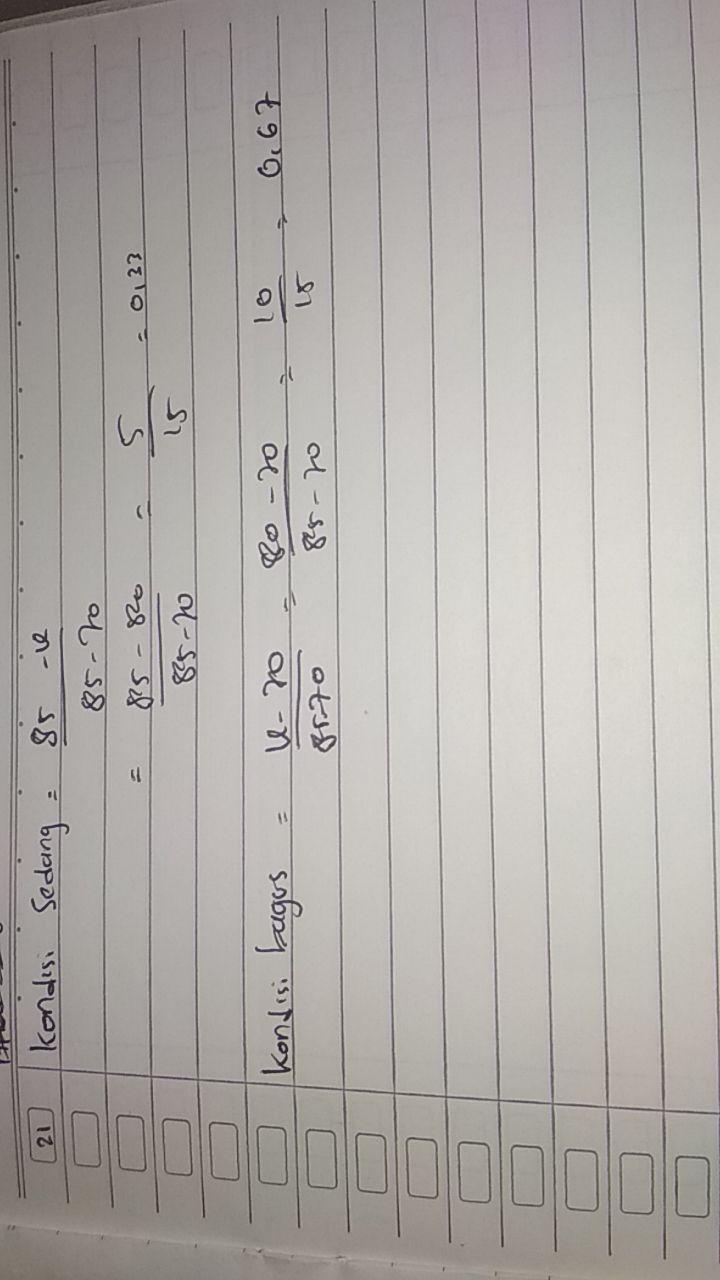 21 Kondisi Sedang = 85 - x / 85 - 70
= 85 - 80 / 85 - 70 = 5 / 15 = 0,33
Kondisi bagus = x - 70 / 85-70 = 80 - 70 / 85 - 70 = 10 / 15 = 0,67